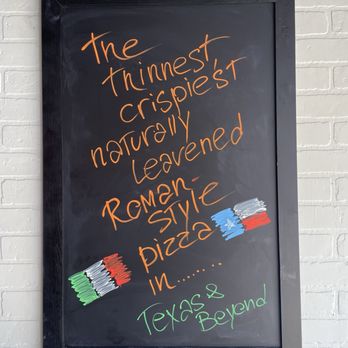 the
thinnest
crispiest
naturally
Leavened
Roman-
style
pizza
in.......
Texas &
Beyond